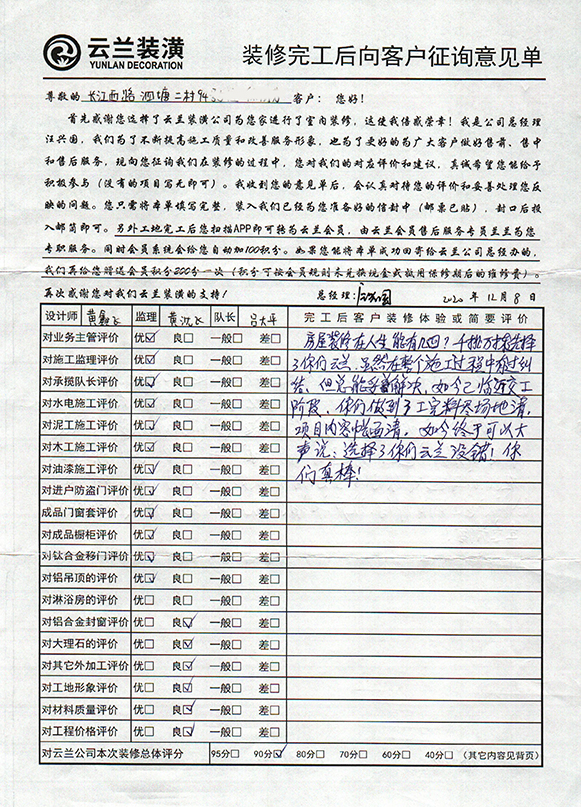 云兰装潢
YUNLAN DECORATION
装修完工后向客户征询意见单
尊敬的 长江西路 泗塘二村94 客户：您好！
首先感谢您选择了云兰装潢公司为您家进行了室内装修，这使我倍感荣幸！我是公司总经理
汪兴国，我们为了不断提高施工质量和改善服务形象，也为了更好的为广大客户做好售前、售中
和售后服务，现向您征询我们在装修的过程中，您对我们的对应评价和建议，真诚希望您能给予
积极参与（没有的项目写无即可）。我收到您的意见单后，会认真对待您的评价和妥善处理您反
映的问题。您只需将本单填写完整，装入我们已经为您准备好的信封中（邮票已贴），封口后投
入邮筒即可。另外工地完工后您扫描APP即可转为云兰会员，由云兰会员售后服务专员兰兰为您
专职服务。同时会员系统会给您自动加100积分。如果您能将本单成功回寄给云兰公司总经办的，
我们再给您赠送会员积分200分一次（积分可按会员规则来兑换现金或抵用保修期后的维修费）。
再次感谢您对我们云兰装潢的支持！ 总经理： 2020 年 12 月 8 日
设计师 监理 黄沈飞 队长 吕大平 完工后客户装修体验或简要评价
对业务主管评价 优☑ 良□ 一般□ 差□ 房屋装修在人生能有几回？千挑万拣选择
对施工监理评价 优☑ 良□ 一般□ 差□ 了你们云兰，虽然在整个施工过程中有过纠
对承揽队长评价 优☑ 良□ 一般□ 差□ 结，但总能妥善解决，如今已临近交工
对水电施工评价 优☑ 良□ 一般□ 差□ 阶段，你们做到了工完料尽场地清，
对泥工施工评价 优☑ 良□ 一般□ 差□ 项目内容帐面清，如今终于可以大
对木工施工评价 优☑ 良□ 一般□ 差□ 声说：选择了你们云兰没错！你
对油漆施工评价 优☑ 良□ 一般□ 差□ 们真棒！
对进户防盗门评价 优☑ 良□ 一般□ 差□
成品门窗套评价 优☑ 良□ 一般□ 差□
对成品橱柜评价 优☑ 良□ 一般□ 差□
对钛合金移门评价 优☑ 良□ 一般□ 差□
对铝吊顶的评价 优☑ 良□ 一般□ 差□
对淋浴房的评价 优□ 良□ 一般□ 差□
对铝合金封窗评价 优□ 良☑ 一般□ 差□
对大理石的评价 优□ 良☑ 一般□ 差□
对其它外加工评价 优□ 良☑ 一般□ 差□
对工地形象评价 优□ 良☑ 一般□ 差□
对材料质量评价 优□ 良☑ 一般□ 差□
对工程价格评价 优□ 良☑ 一般□ 差□
对云兰公司本次装修总体评分 95分□ 90分☑ 80分□ 70分□ 60分□ 40分□ （其它内容见背页）